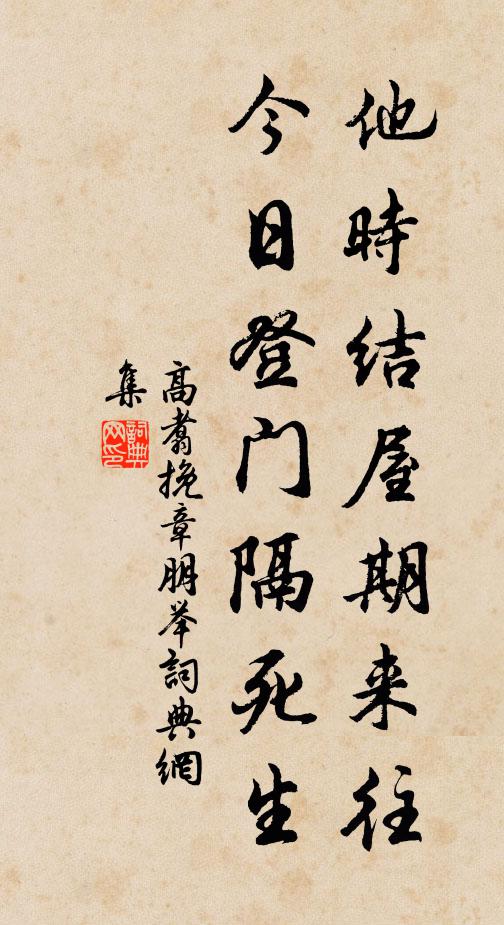 他時结屋期来往
今日登门隔死生
高翥挽章朋举詞典網
集
詞典网印